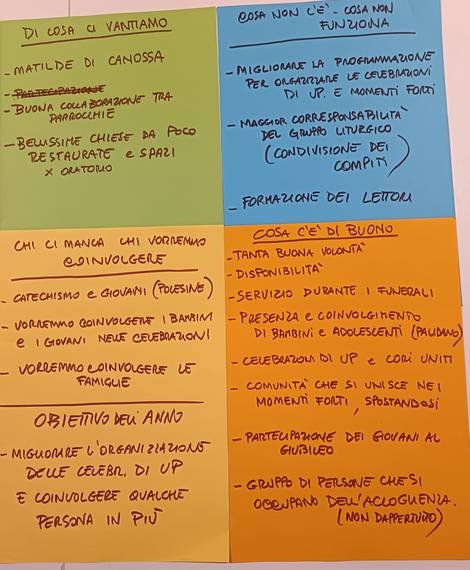 DI COSA CI VANTIAMO
- MATILDE DI CANOSSA
- PARTECIPAZIONE
- BUONA COLLABORAZIONE TRA
PARROCCHIE
- BELLISSIME CHIESE DA POCO
RESTAURATE e SPAZI
X ORATORIO
COSA NON C'E' - COSA NON
FUNZIONA
- MIGLIORARE LA PROGRAMMAZIONE
PER ORGANIZZARE LE CELEBRAZIONI
DI UP. E MOMENTI FORTI
- MAGGIOR CORRESPONSABILITA'
DEL GRUPPO LITURGICO
(CONDIVISIONE DEI
COMPITI)
- FORMAZIONE DEI LETTORI
CHI CI MANCA CHI VORREMMO
COINVOLGERE
- CATECHISMO e GIOVANI (POLESINE)
- VORREMMO COINVOLGERE I BAMBINI
e I GIOVANI NELLE CELEBRAZIONI
- VORREMMO COINVOLGERE LE
FAMIGLIE
OBIETTIVO DELL'ANNO
- MIGLIORARE L'ORGANIZZAZIONE
DELLE CELEBR. DI UP
E COINVOLGERE QUALCHE
PERSONA IN PIÙ
COSA C'E' DI BUONO
- TANTA BUONA VOLONTA'
- DISPONIBILITA'
- SERVIZIO DURANTE I FUNERALI
- PRESENZA e COINVOLGIMENTO
DI BAMBINI e ADOLESCENTI (PALIDANO)
- CELEBRAZIONI DI UP e CORI UNITI
- COMUNITA' CHE SI UNISCE NEI
MOMENTI FORTI, SPOSTANDOSI
- PARTECIPAZIONE DEI GIOVANI AL
GIUBILEO
- GRUPPO DI PERSONE CHE SI
OCCUPANO DELL'ACCOGLIENZA.
(NON DAPPERTUTTO)